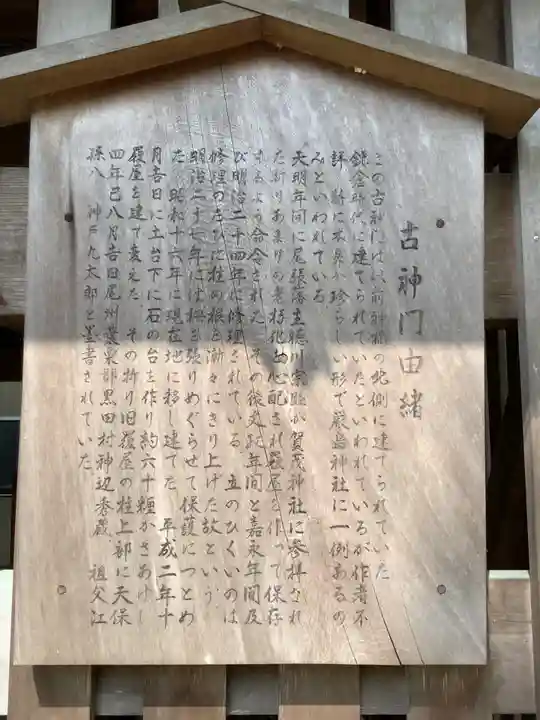 古神門由緒
この古神門は以前神社の北側に建てられていた
鎌倉時代に建てられていたといわれているが作者不
詳 誠に不思議珍らしい形で厳島神社に一例あるの
みといわれている
天明年間に尾張藩主徳川宗睦が賀茂神社に参拝され
た折りあまりの老朽化を心配され覆屋を作って保存
するよう命令された その後文政年間と嘉永年間及
び明治二十四年に修理されている 丈のひくいのは
修理のたびに柱の根を漸々にきり上げた故という
明治二十七年には柵を張りめぐらせて保護につとめ
た 昭和十六年に現在地に移し建てた 平成二年十
月吉日に土台下に石の台を作り約六十糎かさあげし
覆屋を建て変えた その折り旧覆屋の柱上部に天保
四年巳八月吉旦尾州葉栗郡黒田村神辺秀蔵 祖父江
孫八 神戸九太郎と墨書されていた